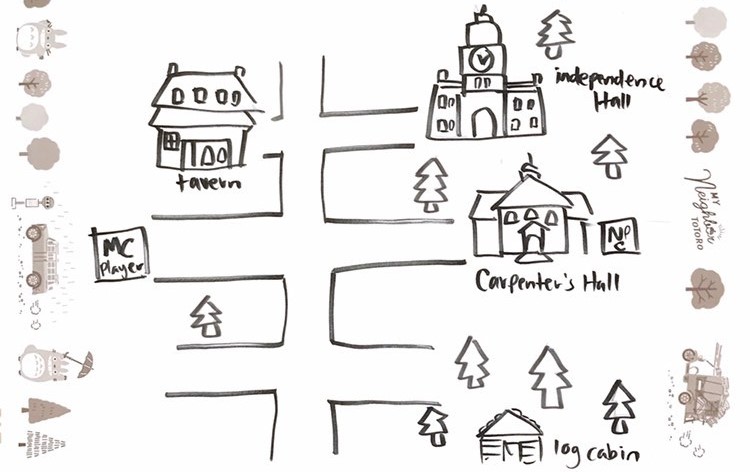 independence
Hall
tavern
MC
Player
NP
C
Carpenter's Hall
log cabin
MY
Neighbor
TOTORO